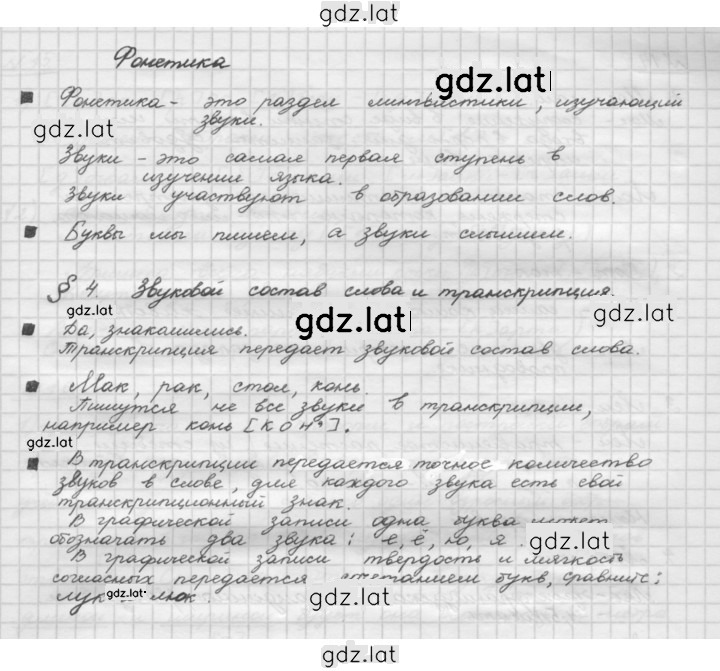 gdz.lat
Фонетика
gdz.lat
Фонетика - это раздел лингвистики, изучающий
gdz.lat
звуки.
Звуки - это самая первая ступень в
изучении языка.
Звуки участвуют в образовании слов.
Буквы мы пишем, а звуки слышим.
§ 4. Звуковой состав слова и транскрипция.
gdz.lat
gdz.lat
gdz.lat
Да, знакомились.
Транскрипция передает звуковой состав слова.
Мак, рак, стол, конь.
Пишутся не все звуки в транскрипции,
например конь [кон'].
gdz.lat
В транскрипции передается точное количество
звуков в слове, для каждого звука есть свой
транскрипционный знак.
В графической записи одна буква может
обозначать два звука: е, ё, ю, я.
gdz.lat
В графической записи твердость и мягкость
согласных передается сочетанием букв, сравните:
лук - люк.
gdz.lat
gdz.lat
gdz.lat